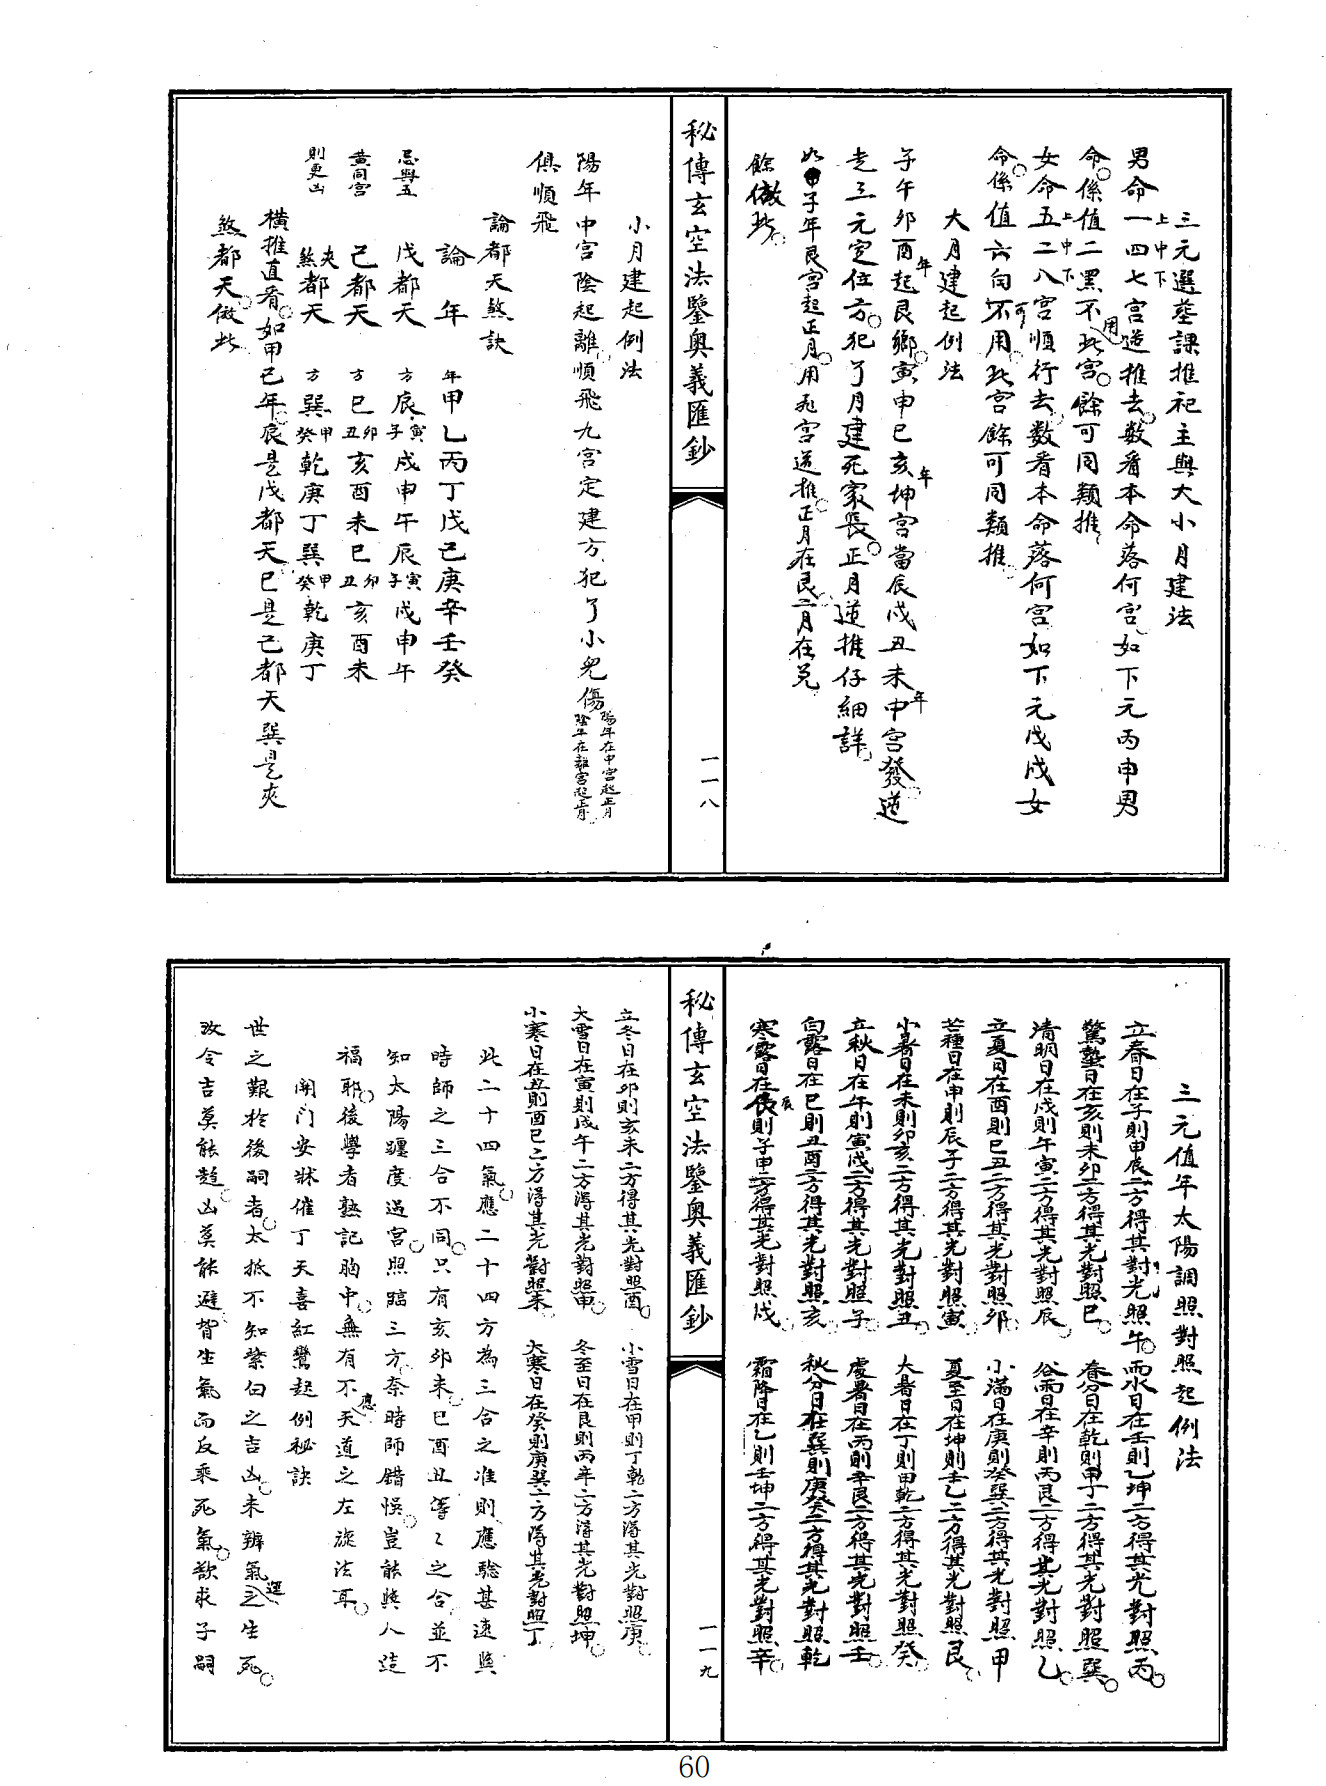 三元選塟課推祀主與大小月建法
男命一四七宮逆推去數看本命落何宮如下元丙申男
上中下
命係值二黑不用此宮餘可同類推
女命五二八宮順行去數看本命落何宮如下元戊戌女
上中下
命係值六白不可用此宮餘可同類推
大月建起例法
子午卯酉年起艮鄉寅申巳亥年坤宮當辰戌丑未年中宮發逆
走三元定位方犯了月建死家長正月逆推仔細詳
如甲子年艮宮起正月用飛宮逆推正月在艮二月在兌
餘倣此
秘傳玄空法鑒奧義匯鈔
一一八
小月建起例法
陽年中宮陰起離順飛九宮定建方犯了小兒傷
陽年在中宮起正月
陰年在離宮起正月
俱順飛
論都天煞訣
論年 年甲乙丙丁戊己庚辛壬癸
忌與五 戊都天 方辰寅子戌申午辰寅子戌申午
黃同宮 己都天 方巳卯丑亥酉未巳卯丑亥酉未
則更凶 夾煞都天 方巽甲癸乾庚丁巽甲癸乾庚丁
橫推直看如甲己年辰是戊都天巳是己都天巽是夾
煞都天倣此
三元值年太陽調照對照起例法
立春日在子則申辰二方得其對光照午 雨水日在壬則乙坤二方得其光對照丙
驚蟄日在亥則未卯二方得其光對照巳 春分日在乾則甲丁二方得其光對照巽
清明日在戌則午寅二方得其光對照辰 谷雨日在辛則丙艮二方得其光對照乙
立夏日在酉則巳丑二方得其光對照卯 小滿日在庚則癸巽二方得其光對照甲
芒種日在申則辰子二方得其光對照寅 夏至日在坤則壬乙二方得其光對照艮
小暑日在未則卯亥二方得其光對照丑 大暑日在丁則甲乾二方得其光對照癸
立秋日在午則寅戌二方得其光對照子 處暑日在丙則辛艮二方得其光對照壬
白露日在巳則丑酉二方得其光對照亥 秋分日在巽則庚癸二方得其光對照乾
寒露日在辰則子申二方得其光對照戌 霜降日在乙則壬坤二方得其光對照辛
秘傳玄空法鑒奧義匯鈔
一一九
立冬日在卯則亥未二方得其光對照酉 小雪日在甲則丁乾二方得其光對照庚
大雪日在寅則戌午二方得其光對照申 冬至日在艮則丙辛二方得其光對照坤
小寒日在丑則酉巳二方得其光對照未 大寒日在癸則庚巽二方得其光對照丁
此二十四氣應二十四方為三合之准則應驗甚速與
時師之三合不同只有亥卯未巳酉丑等之合並不
知太陽躔度過宮照臨三方奈時師錯悞豈能與人造
福耶後學者熟記胸中無有不應天道之左旋法耳
開門安牀催丁天喜紅鸞起例秘訣
世之艱於後嗣者太抵不知紫白之吉凶未辨氣運之生死
故令吉莫能趨凶莫能避背生氣而反乘死氣欲求子嗣
60